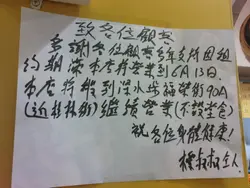 致各位顧客
多謝各位顧客多年支持因租
約期滿本店將營業到6月13日
本店將搬到深水埗福榮街90A
(近桂林街)繼續營業(不設堂食)
祝各位身體健康!
權叔叔全人